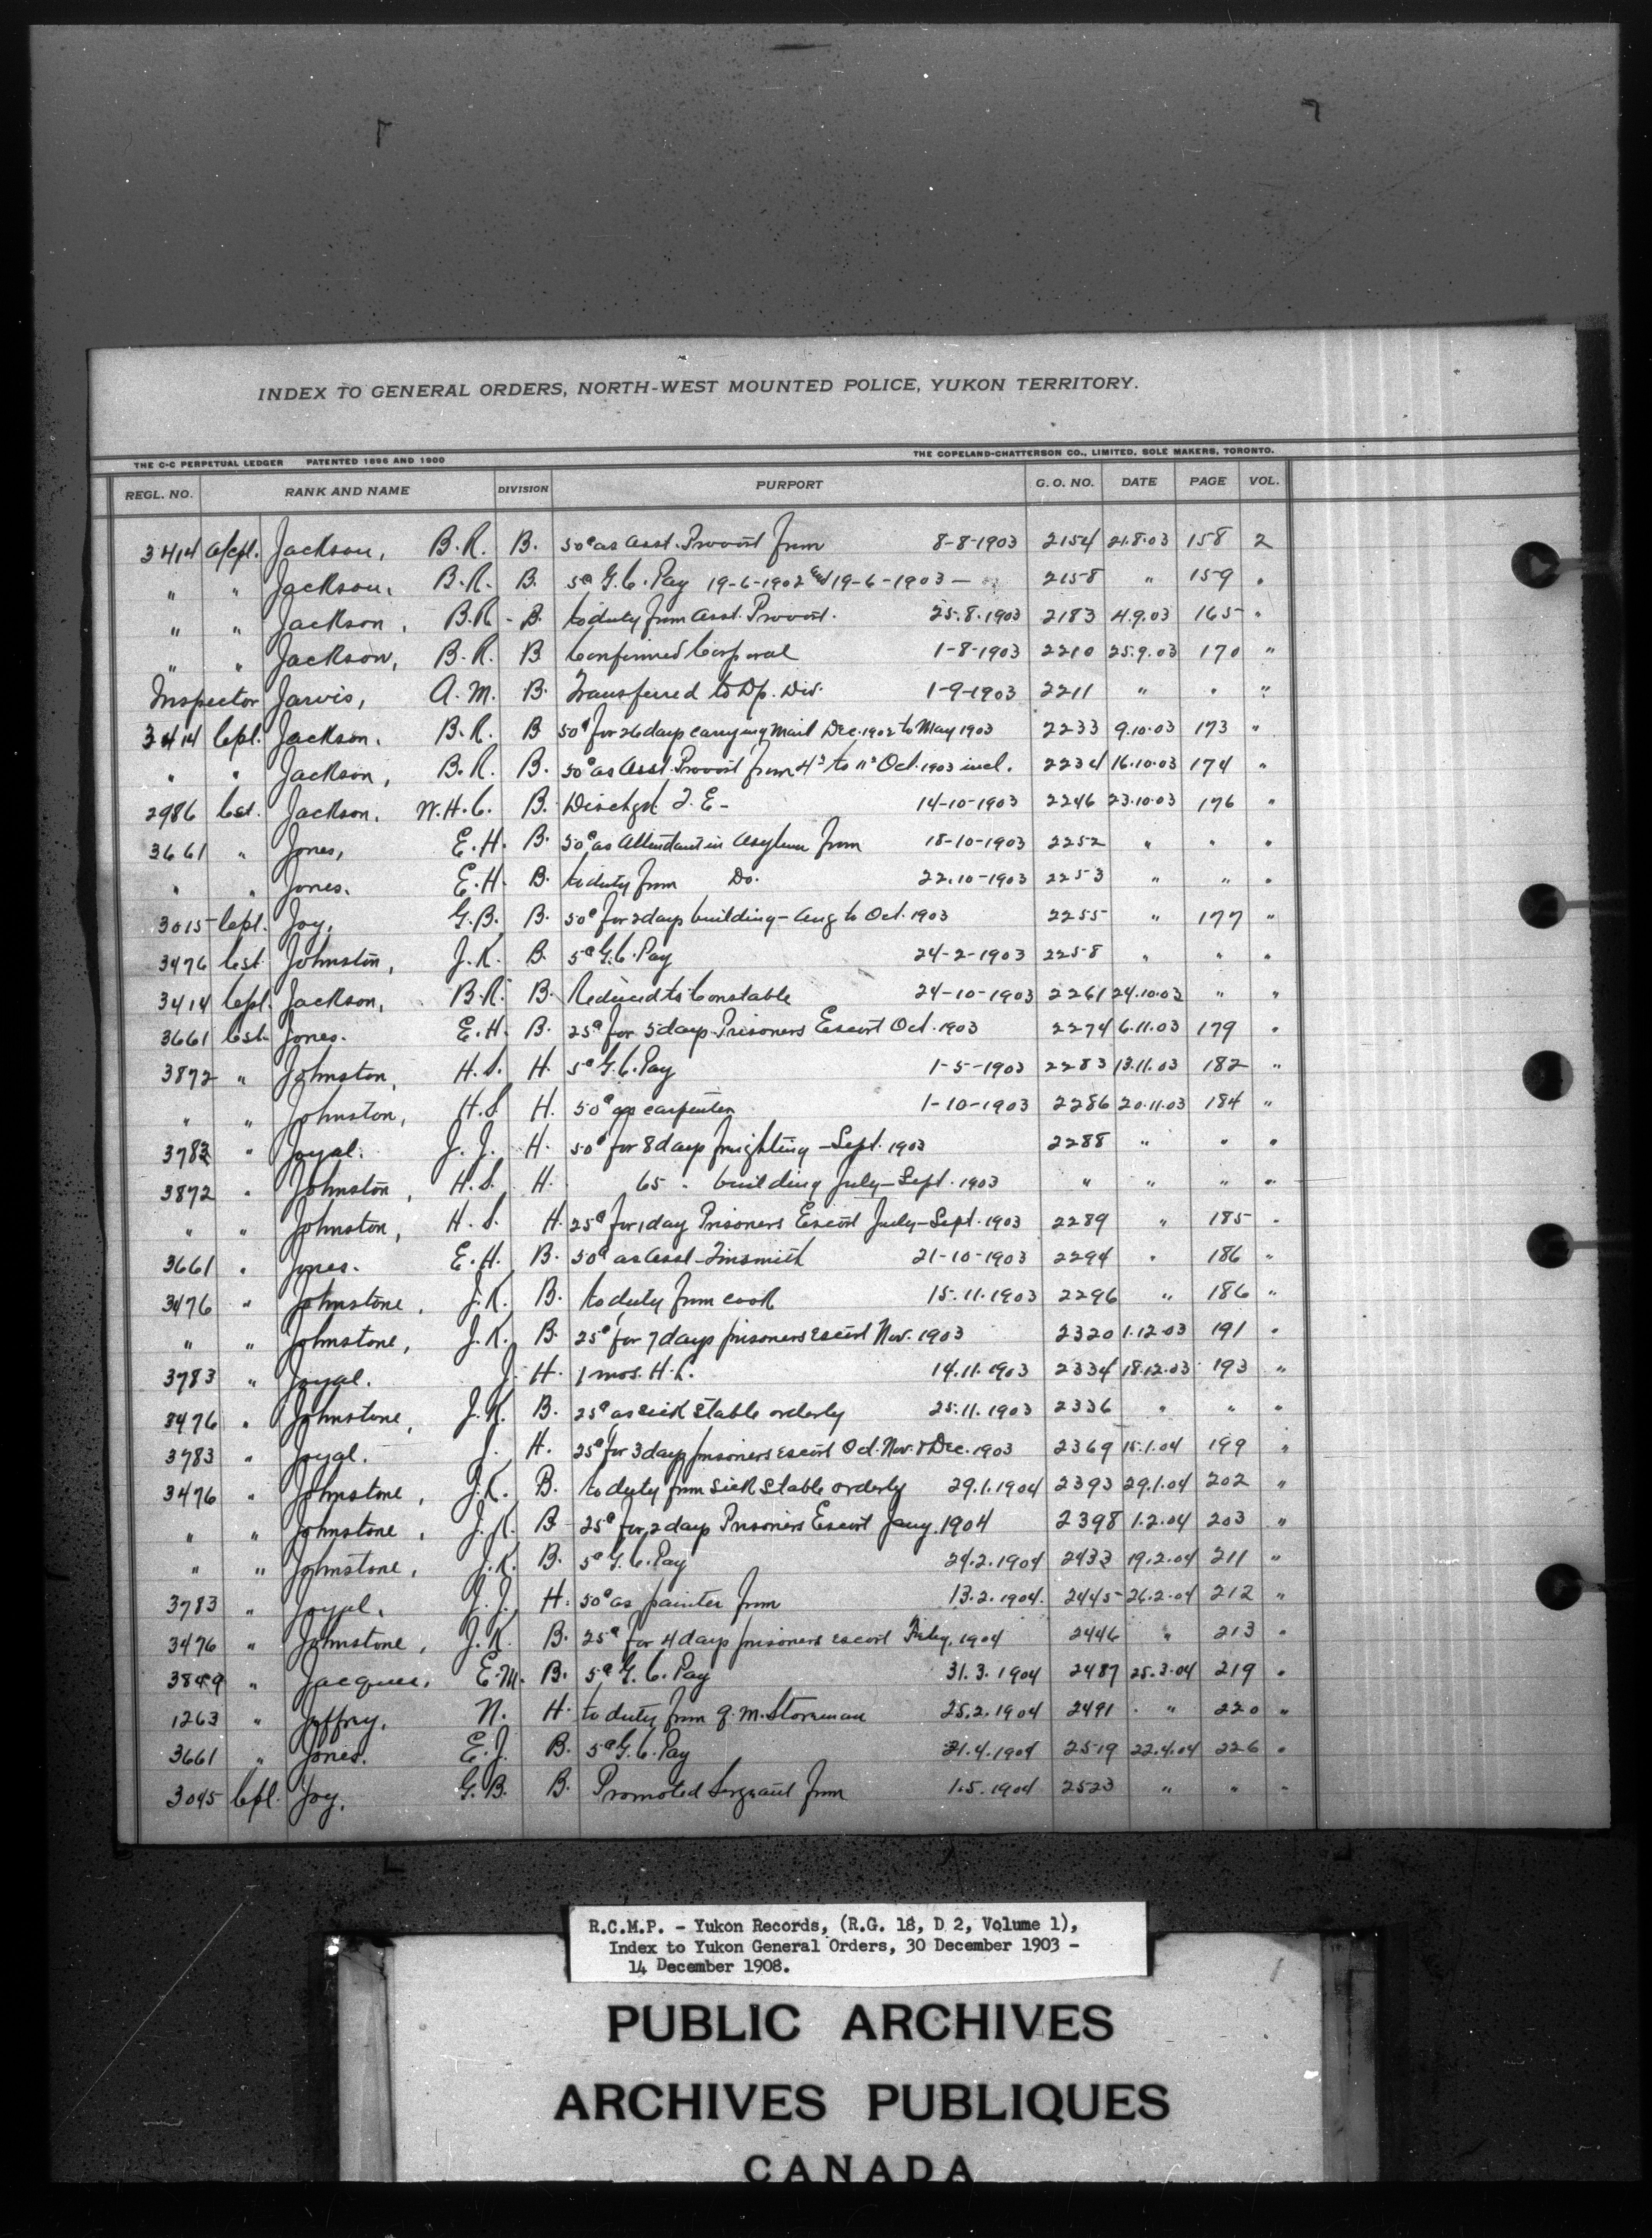 INDEX TO GENERAL ORDERS, NORTH-WEST MOUNTED POLICE, YUKON TERRITORY.
THE C-C PERPETUAL LEDGER PATENTED 1896 AND 1900 THE COPELAND-CHATTERSON CO., LIMITED, SOLE MAKERS, TORONTO.
REGL. NO. RANK AND NAME DIVISION PURPORT G. O. NO. DATE PAGE VOL.
3414 a/cpl. Jackson, B.R. B. 50¢ as Asst. Provost from 8-8-1903 2154 21.8.03 158 2
" " Jackson, B.R. B. 5¢ G.C. Pay 19-6-1902 and 19-6-1903 — 2158 " 159 "
" " Jackson, B.R. B. to duty from Asst. Provost. 25.8.1903 2183 4.9.03 165 "
" " Jackson, B.R. B Confirmed Corporal 1-8-1903 2210 25.9.03 170 "
Inspector Jarvis, A.M. B. Transferred to Dp. Div. 1-9-1903 2211 " " "
3414 Cpl. Jackson. B.R. B 50¢ for 26 days carrying Mail Dec. 1902 to May 1903 2233 9.10.03 173 "
" " Jackson, B.R. B. 50¢ as Asst. Provost from 4th to 11th Oct. 1903 incl. 2234 16.10.03 174 "
2986 Cst. Jackson. W.H.C. B. Dischgd T.E- 14-10-1903 2246 23.10.03 176 "
3661 " Jones, E.H. B. 50¢ as Attendant in Asylum from 18-10-1903 2252 " " "
" " Jones. E.H. B. to duty from Do. 22.10-1903 2253 " " "
3015 Cpl. Joy, G.B. B. 50¢ for 2 days building - Aug to Oct. 1903 2255 " 177 "
3476 Cst Johnston, J.K. B. 5¢ G.C. Pay 24-2-1903 2258 " " "
3414 Cpl. Jackson, B.R. B. Reduced to Constable 24-10-1903 2261 24.10.03 " "
3661 Cst. Jones. E.H. B. 25¢ for 5 days Prisoners Escort Oct. 1903 2274 6.11.03 179 "
3872 " Johnston, H.S. H. 5¢ G.C. Pay 1-5-1903 2283 13.11.03 182 "
" " Johnston, H.S. H. 50¢ as carpenter 1-10-1903 2286 20.11.03 184 "
3783 " Joyal. J.J. H. 50¢ for 8 days freighting - Sept. 1903 2288 " " "
3872 " Johnston, H.S. H. 65 " building July-Sept. 1903 " " " "
" " Johnston, H.S. H. 25¢ for 1 day Prisoners Escort July-Sept. 1903 2289 " 185 "
3661 " Jones. E.H. B. 50¢ as Asst-Tinsmith 21-10-1903 2294 " 186 "
3476 " Johnstone, J.K. B. to duty from cook 15.11.1903 2296 " 186 "
" " Johnstone, J.K. B. 25¢ for 7 days prisoners escort Nov. 1903 2320 1.12.03 191 "
3783 " Joyal. J. H. 1 mos. H.L. 14.11.1903 2334 18.12.03 193 "
3476 " Johnstone, J.K. B. 25¢ as sick stable orderly 25.11.1903 2336 " " "
3783 " Joyal. J. H. 25¢ for 3 days prisoners escort Oct. Nov. & Dec. 1903 2369 15.1.04 199 "
3476 " Johnstone, J.K. B. to duty from sick stable orderly 29.1.1904 2393 29.1.04 202 "
" " Johnstone, J.K. B 25¢ for 2 days Prisoners Escort Jany. 1904 2398 1.2.04 203 "
" " Johnstone, J.K. B. 5¢ G.C. Pay 24.2.1904 2433 19.2.04 211 "
3783 " Joyal. J.J. H. 50¢ as painter from 13.2.1904. 2445 26.2.04 212 "
3476 " Johnstone, J.K. B. 25¢ for 4 days prisoners escort Feby. 1904 2446 " 213 "
3849 " Jacques, E.M. B. 5¢ G.C. Pay 31.3.1904 2487 25.3.04 219 "
1263 " Jeffrey, N. H. to duty from Q.M. Storeman 25.2.1904 2491 " 220 "
3661 " Jones. E.J. B. 5¢ G.C. Pay 21.4.1904 2519 22.4.04 226 "
3045 Cpl. Joy, G.B. B. Promoted Sergeant from 1.5.1904 2523 " " "
R.C.M.P. - Yukon Records, (R.G. 18, D 2, Volume 1),
Index to Yukon General Orders, 30 December 1903 -
14 December 1908.
PUBLIC ARCHIVES
ARCHIVES PUBLIQUES
CANADA